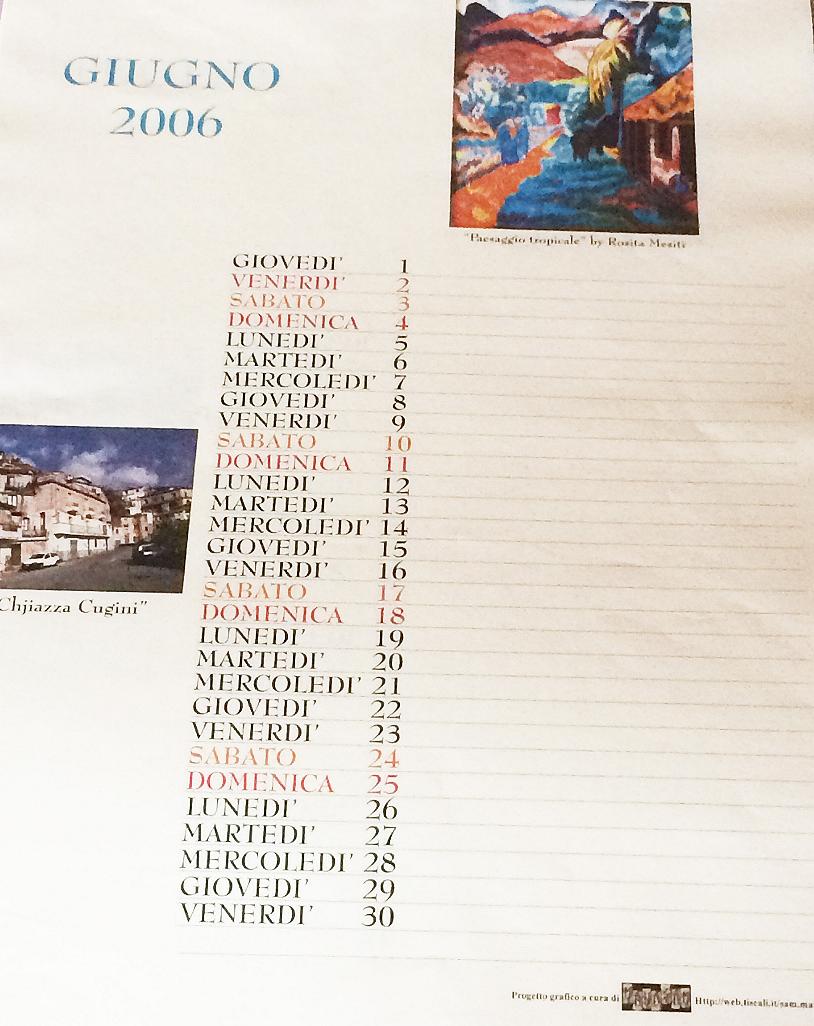 GIUGNO
2006
"Paesaggio tropicale" by Rosita Mesiti
GIOVEDI' 1
VENERDI' 2
SABATO 3
DOMENICA 4
LUNEDI' 5
MARTEDI' 6
MERCOLEDI' 7
GIOVEDI' 8
VENERDI' 9
SABATO 10
DOMENICA 11
LUNEDI' 12
MARTEDI' 13
MERCOLEDI' 14
GIOVEDI' 15
VENERDI' 16
SABATO 17
DOMENICA 18
LUNEDI' 19
MARTEDI' 20
MERCOLEDI' 21
GIOVEDI' 22
VENERDI' 23
SABATO 24
DOMENICA 25
LUNEDI' 26
MARTEDI' 27
MERCOLEDI' 28
GIOVEDI' 29
VENERDI' 30
Chjiazza Cugini"
Progetto grafico a cura di
Http://web.tiscali.it/sam.ma